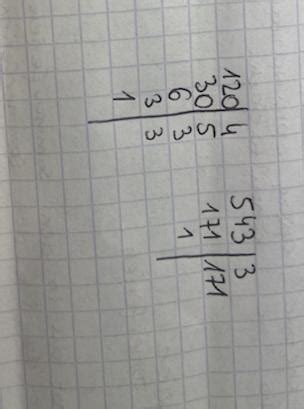 120 | 4
30 | 5
6 | 3
3 | 3
1 |
543 | 3
171 | 171
1 |